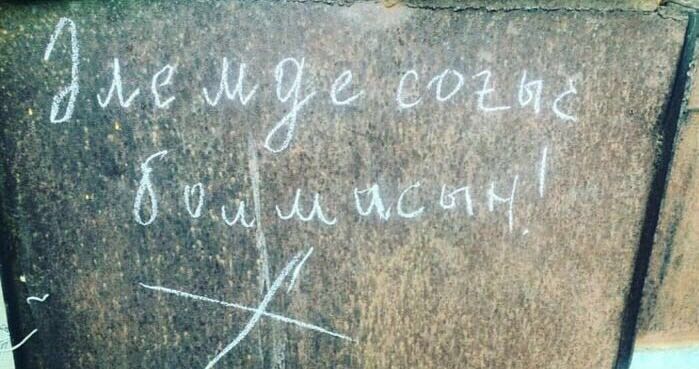 Әлемде соғыс
болмасын!